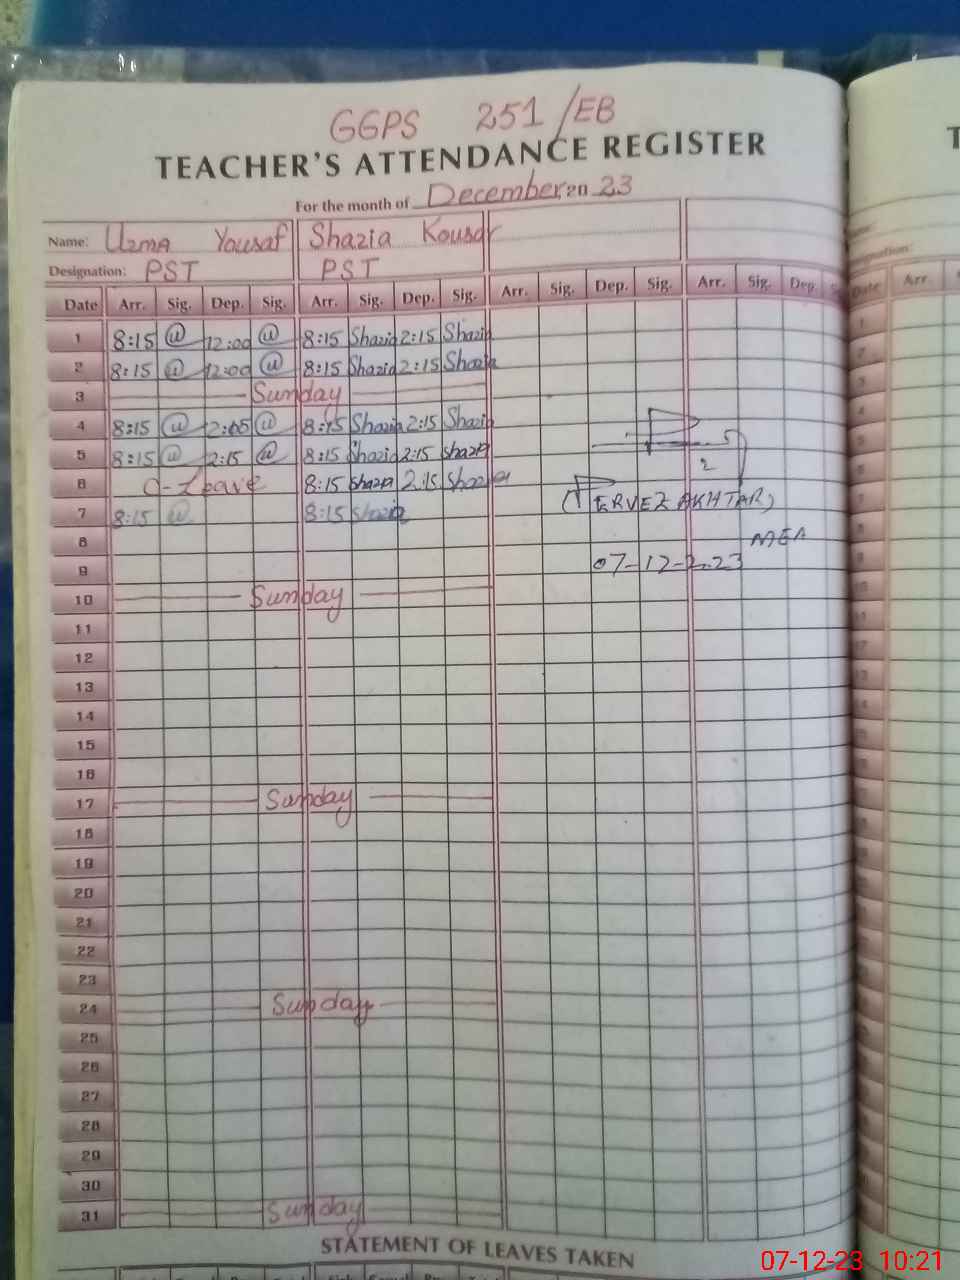 GGPS 251/EB
TEACHER'S ATTENDANCE REGISTER
For the month of December, 20 23
Name: Uzma Yousaf Shazia Kousar
Designation: PST PST
Date Arr. Sig. Dep. Sig. Arr. Sig. Dep. Sig. Arr. Sig. Dep. Sig. Arr. Sig. Dep. S
1 8:15 12:00 8:15 Shazia 2:15 Shazia
2 8:15 12:00 8:15 Shazia 2:15 Shazia
3 Sunday
4 8:15 8:15 Shazia 2:15 Shazia
5 8:15 2:15 8:15 Shazia 2:15 Shazia
6 C-Leave 8:15 Shazia 2:15 Shazia
7 8:15 8:15 Shazia
(PERVEZ AKHTAR)
8 MEA
9 07-12-2023
10 Sunday
11
12
13
14
15
16
17 Sunday
18
19
20
21
22
23
24 Sunday
25
26
27
28
29
30
31 Sunday
STATEMENT OF LEAVES TAKEN
07-12-23 10:21